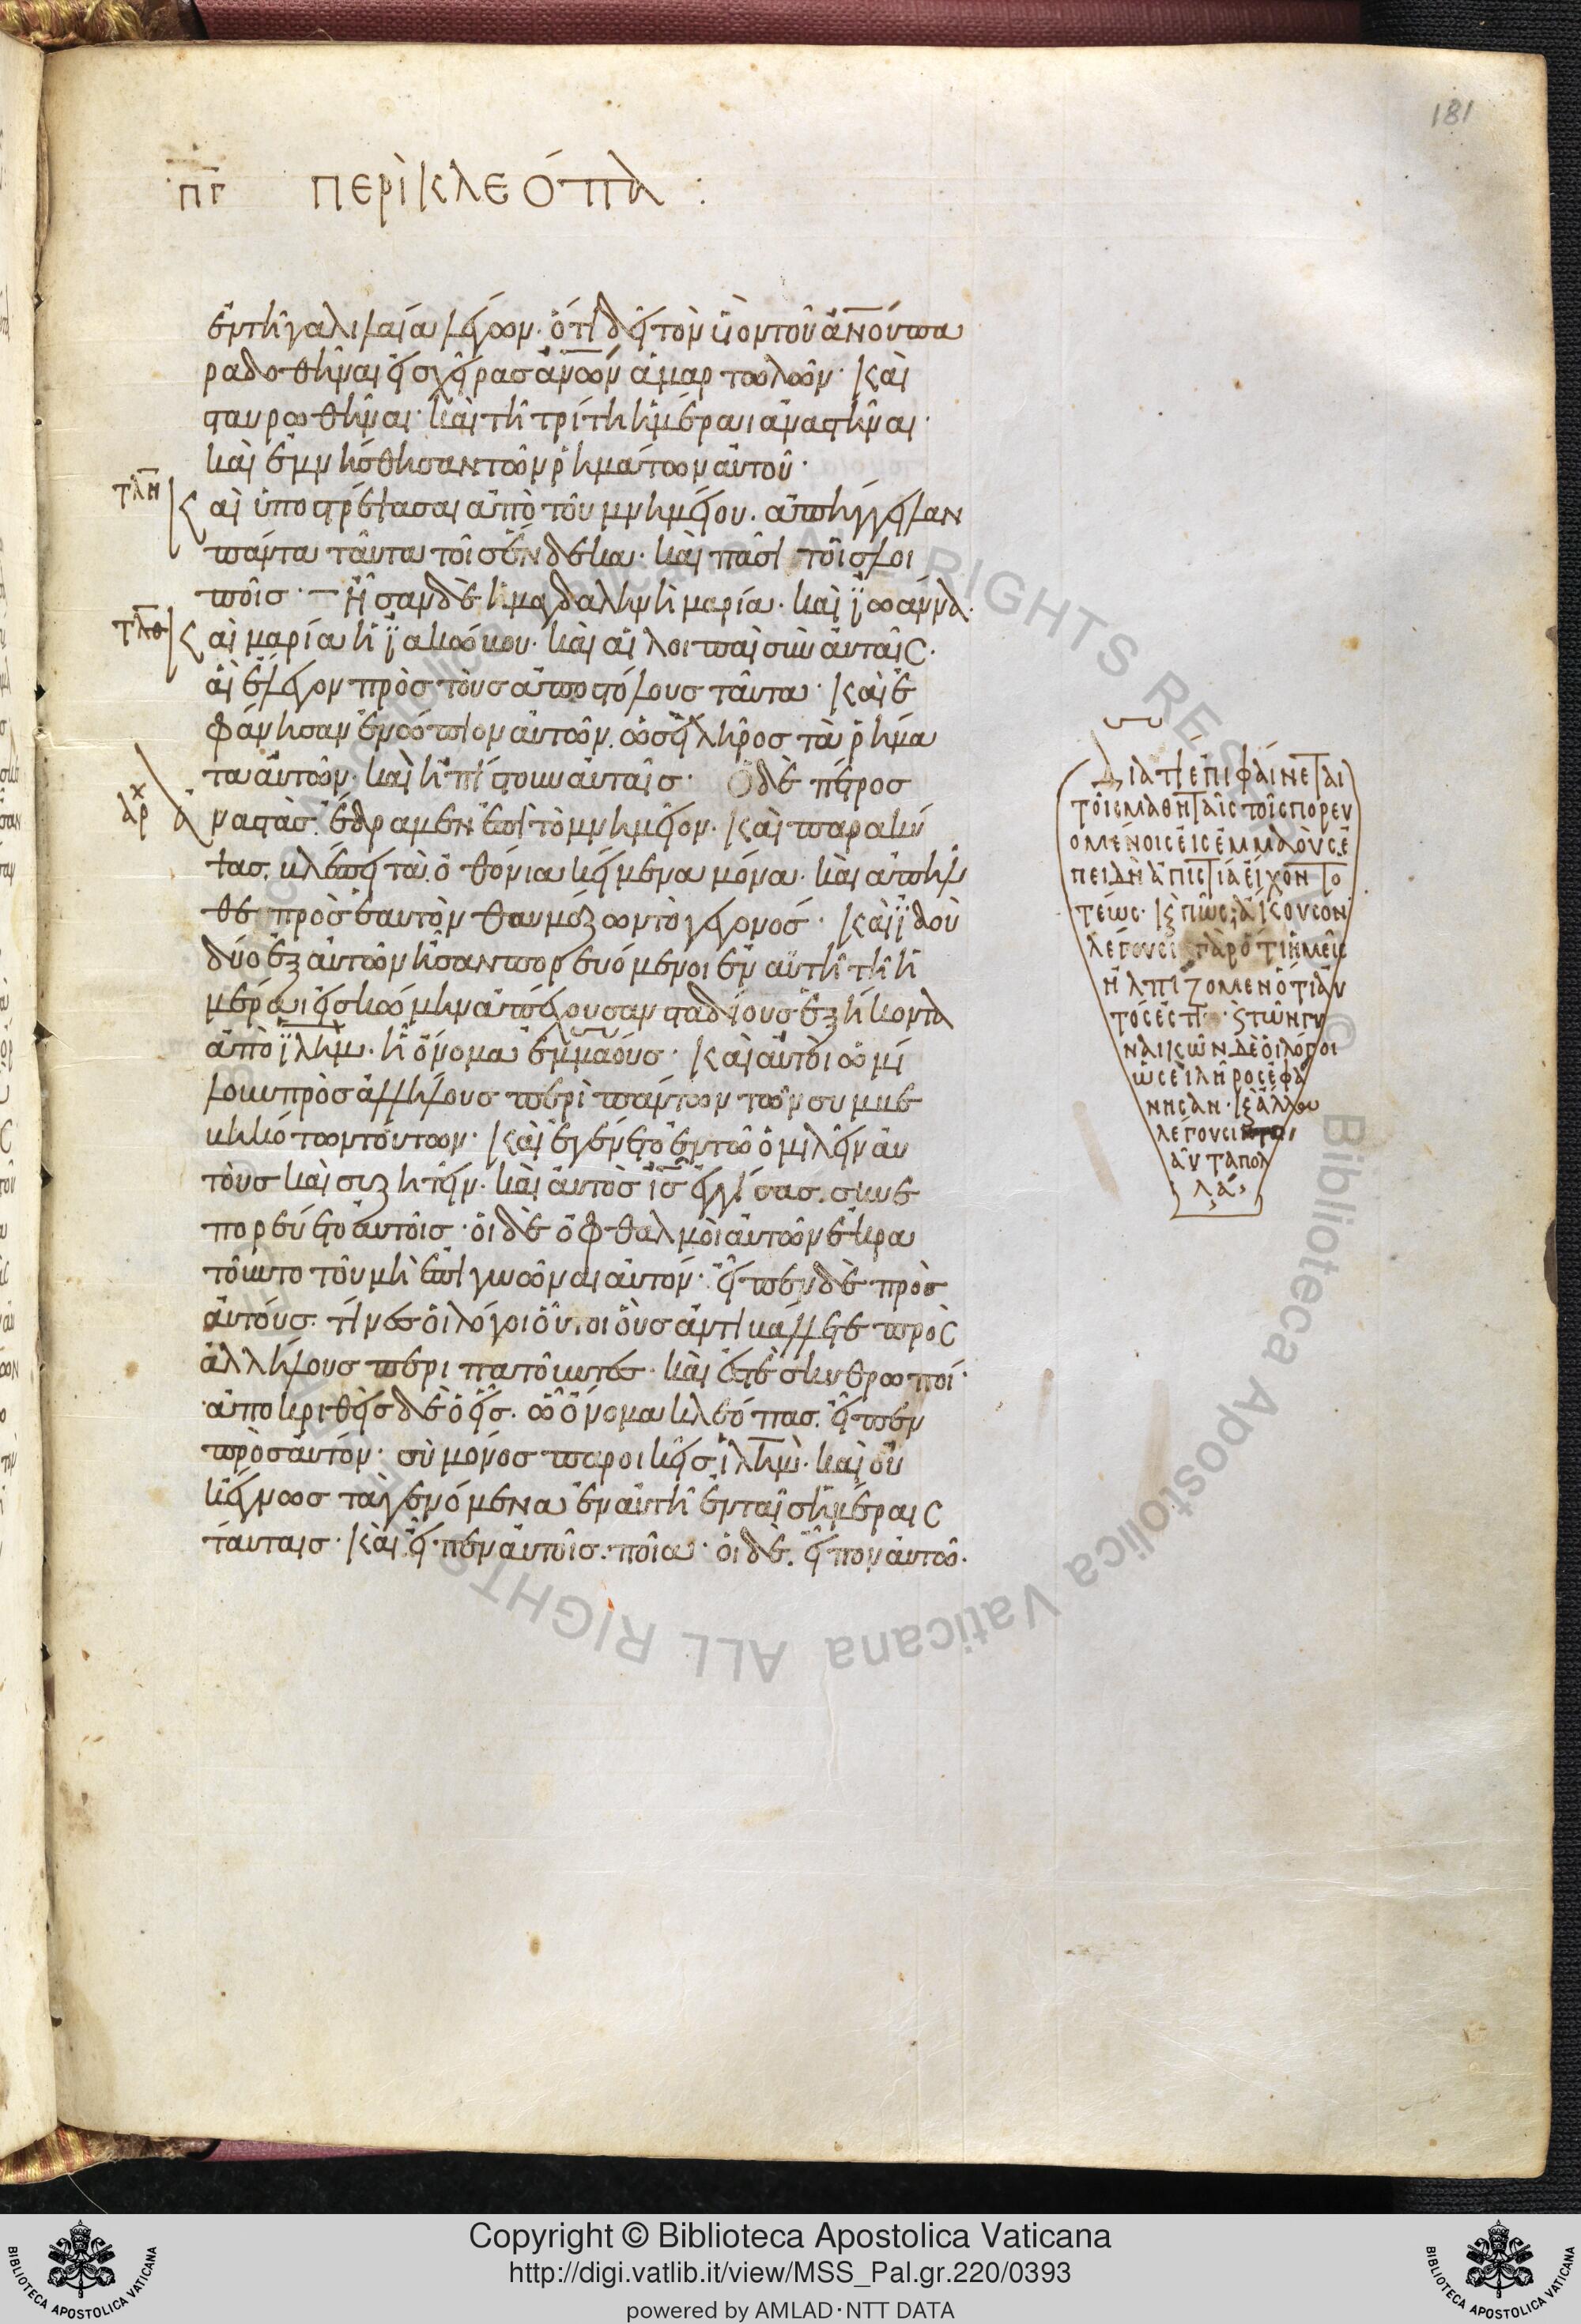 181
πγ περὶ κλεόπα :
ἐν τῆ γαλιλαία λέγων· ὅτι δεῖ τὸν υἱὸν τοῦ ἀνου πα
ραδοθῆναι εἰς χεῖρας ἀνων ἁμαρτωλῶν· καὶ
σταυρωθῆναι· καὶ τῆ τρίτη ἡμέραι ἀναστῆναι·
καὶ ἐμνήσθησαν τῶν ῥημάτων αὐτοῦ·
τλη
καὶ ὑποστρέψασαι ἀπὸ τοῦ μνημείου. ἀπήγγειλαν
πάντα ταῦτα τοῖς ἕνδεκα· καὶ πᾶσι τοῖς λοι
ποῖς· Ἦσαν δὲ ἡ μαγδαληνὴ μαρία· καὶ ϊωάννα·
τλθ
καὶ μαρία ἡ ϊακώβου· καὶ αἱ λοιπαὶ σὺν αὐταῖς·
αἳ ἔλεγον πρὸς τοὺς ἀποστόλους ταῦτα· καὶ ἐ
φάνησαν ἐνώπιον αὐτῶν. ὡσεὶ λῆρος τὰ ῥήμα
τα αὐτῶν· καὶ ἠπίστουν αὐταῖς· Ὁ δὲ πέτρος
ἀρχ
ἀναστὰς. ἔδραμεν ἐπὶ τὸ μνημεῖον· καὶ παρακύ
ψας. βλέπει τὰ ὀθόνια κείμενα μόνα· καὶ ἀπῆλ
θε πρὸς ἑαυτὸν θαυμάζων τὸ γεγονός· καὶ ϊδοὺ
δύο ἐξ αὐτῶν ἦσαν πορευόμενοι ἐν αὐτῆ τῆ ἡ
μέραι εἰς κώμην ἀπέχουσαν σταδίους ἑξήκοντα
ἀπὸ ϊλημ· ἧ ὄνομα ἐμμαούς· καὶ αὐτοὶ ὡμί
λουν πρὸς ἀλλήλους περὶ πάντων τῶν συμβε
βηκότων τούτων· καὶ ἐγένετο ἐν τῶ ὁμιλεῖν αὐ
τοὺς καὶ συζητεῖν· καὶ αὐτὸς ις ἐγγίσας. συνε
πορεύετο αὐτοῖς· οἱ δὲ ὀφθαλμοὶ αὐτῶν ἐκρα
τοῦντο τοῦ μὴ ἐπιγνῶναι αὐτόν· εἶπεν δὲ πρὸς
αὐτούς· τίνες οἱ λόγοι οὗτοι οὓς ἀντιβάλλετε πρὸς
ἀλλήλους περιπατοῦντες· καὶ ἐστὲ σκυθρωποί·
ἀποκριθεὶς δὲ ὁ εἷς. ὧ ὄνομα κλεόπας. εἶπεν
πρὸς αὐτόν· σὺ μόνος παροικεῖς ϊλημ· καὶ οὐ
κ ἔγνως τὰ γενόμενα ἐν αὐτῆ ἐν ταῖς ἡμέραις
ταύταις· καὶ εἶπεν αὐτοῖς· ποῖα· οἱ δὲ. εἶπον αὐτῶ·
Διατί ἐπιφαίνεται
τοῖς μαθηταῖς τοῖς πορευ
ομένοις εἰς ἐμμαοὺς ἐ
πειδὴ ἀπιστίαν εἶχον το
τέως· κ πῶς; ἄκουσον
λέγουσι γὰρ ὅτι ἡμεῖς
ἠλπίζομεν ὅτι αὐ
τός ἐστι· κ τῶν γυ
ναικῶν δὲ οἱ λόγοι
ὡσεὶ λῆρος ἐφά
νησαν· κ ἄλλου
λέγουσι
αῦτα πολ
λά·
Copyright © Biblioteca Apostolica Vaticana
http://digi.vatlib.it/view/MSS_Pal.gr.220/0393
powered by AMLAD·NTT DATA
BIBLIOTECA APOSTOLICA VATICANA
BIBLIOTECA APOSTOLICA VATICANA
© Biblioteca Apostolica Vaticana ALL RIGHTS RESERVED